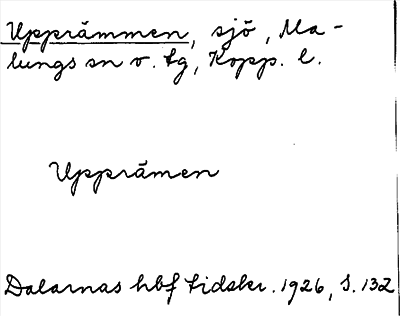 Upprämmen, sjö, Ma-
lungs sn o. tg, Kopp. l.
Upprämen
Dalarnas hbf tidskr. 1926, s. 132